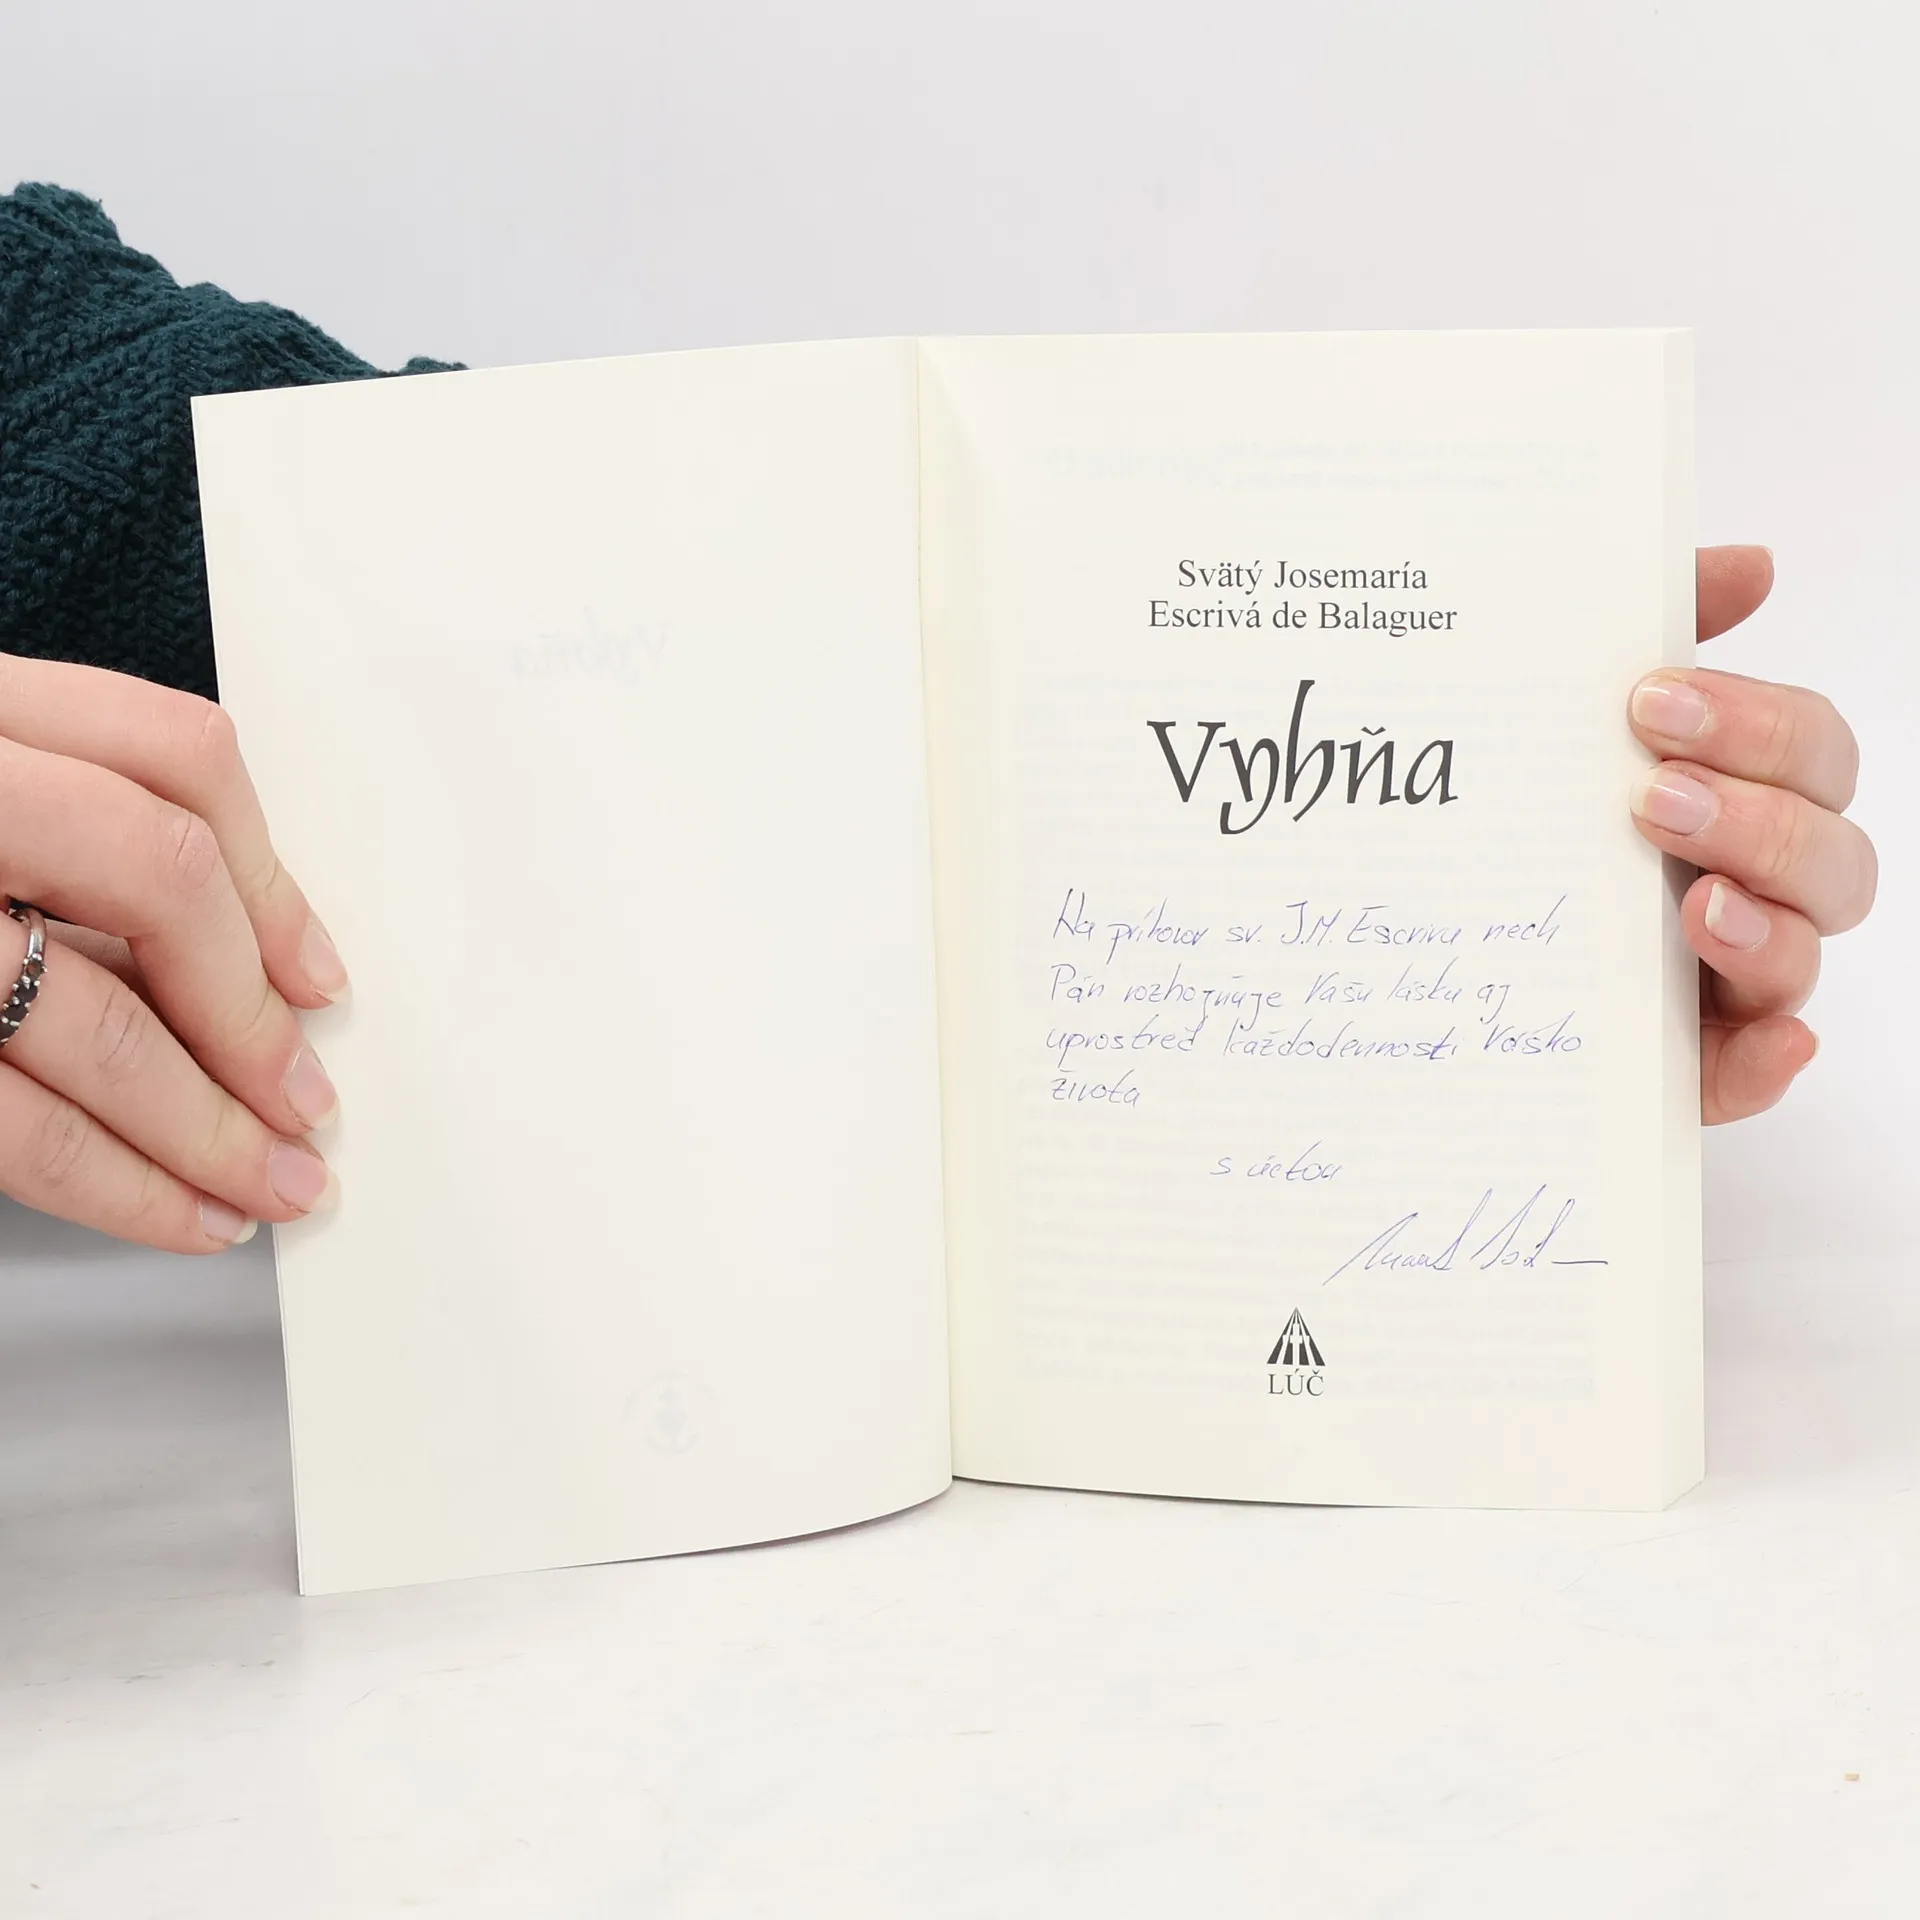 Svätý Josemaría
Escrivá de Balaguer
Vyhňa
Na príhovor sv. J.M. Escrivu nech
Pán rozhojňuje Vašu lásku aj
uprostred každodennosti Vášho
života
s úctou
LÚČ